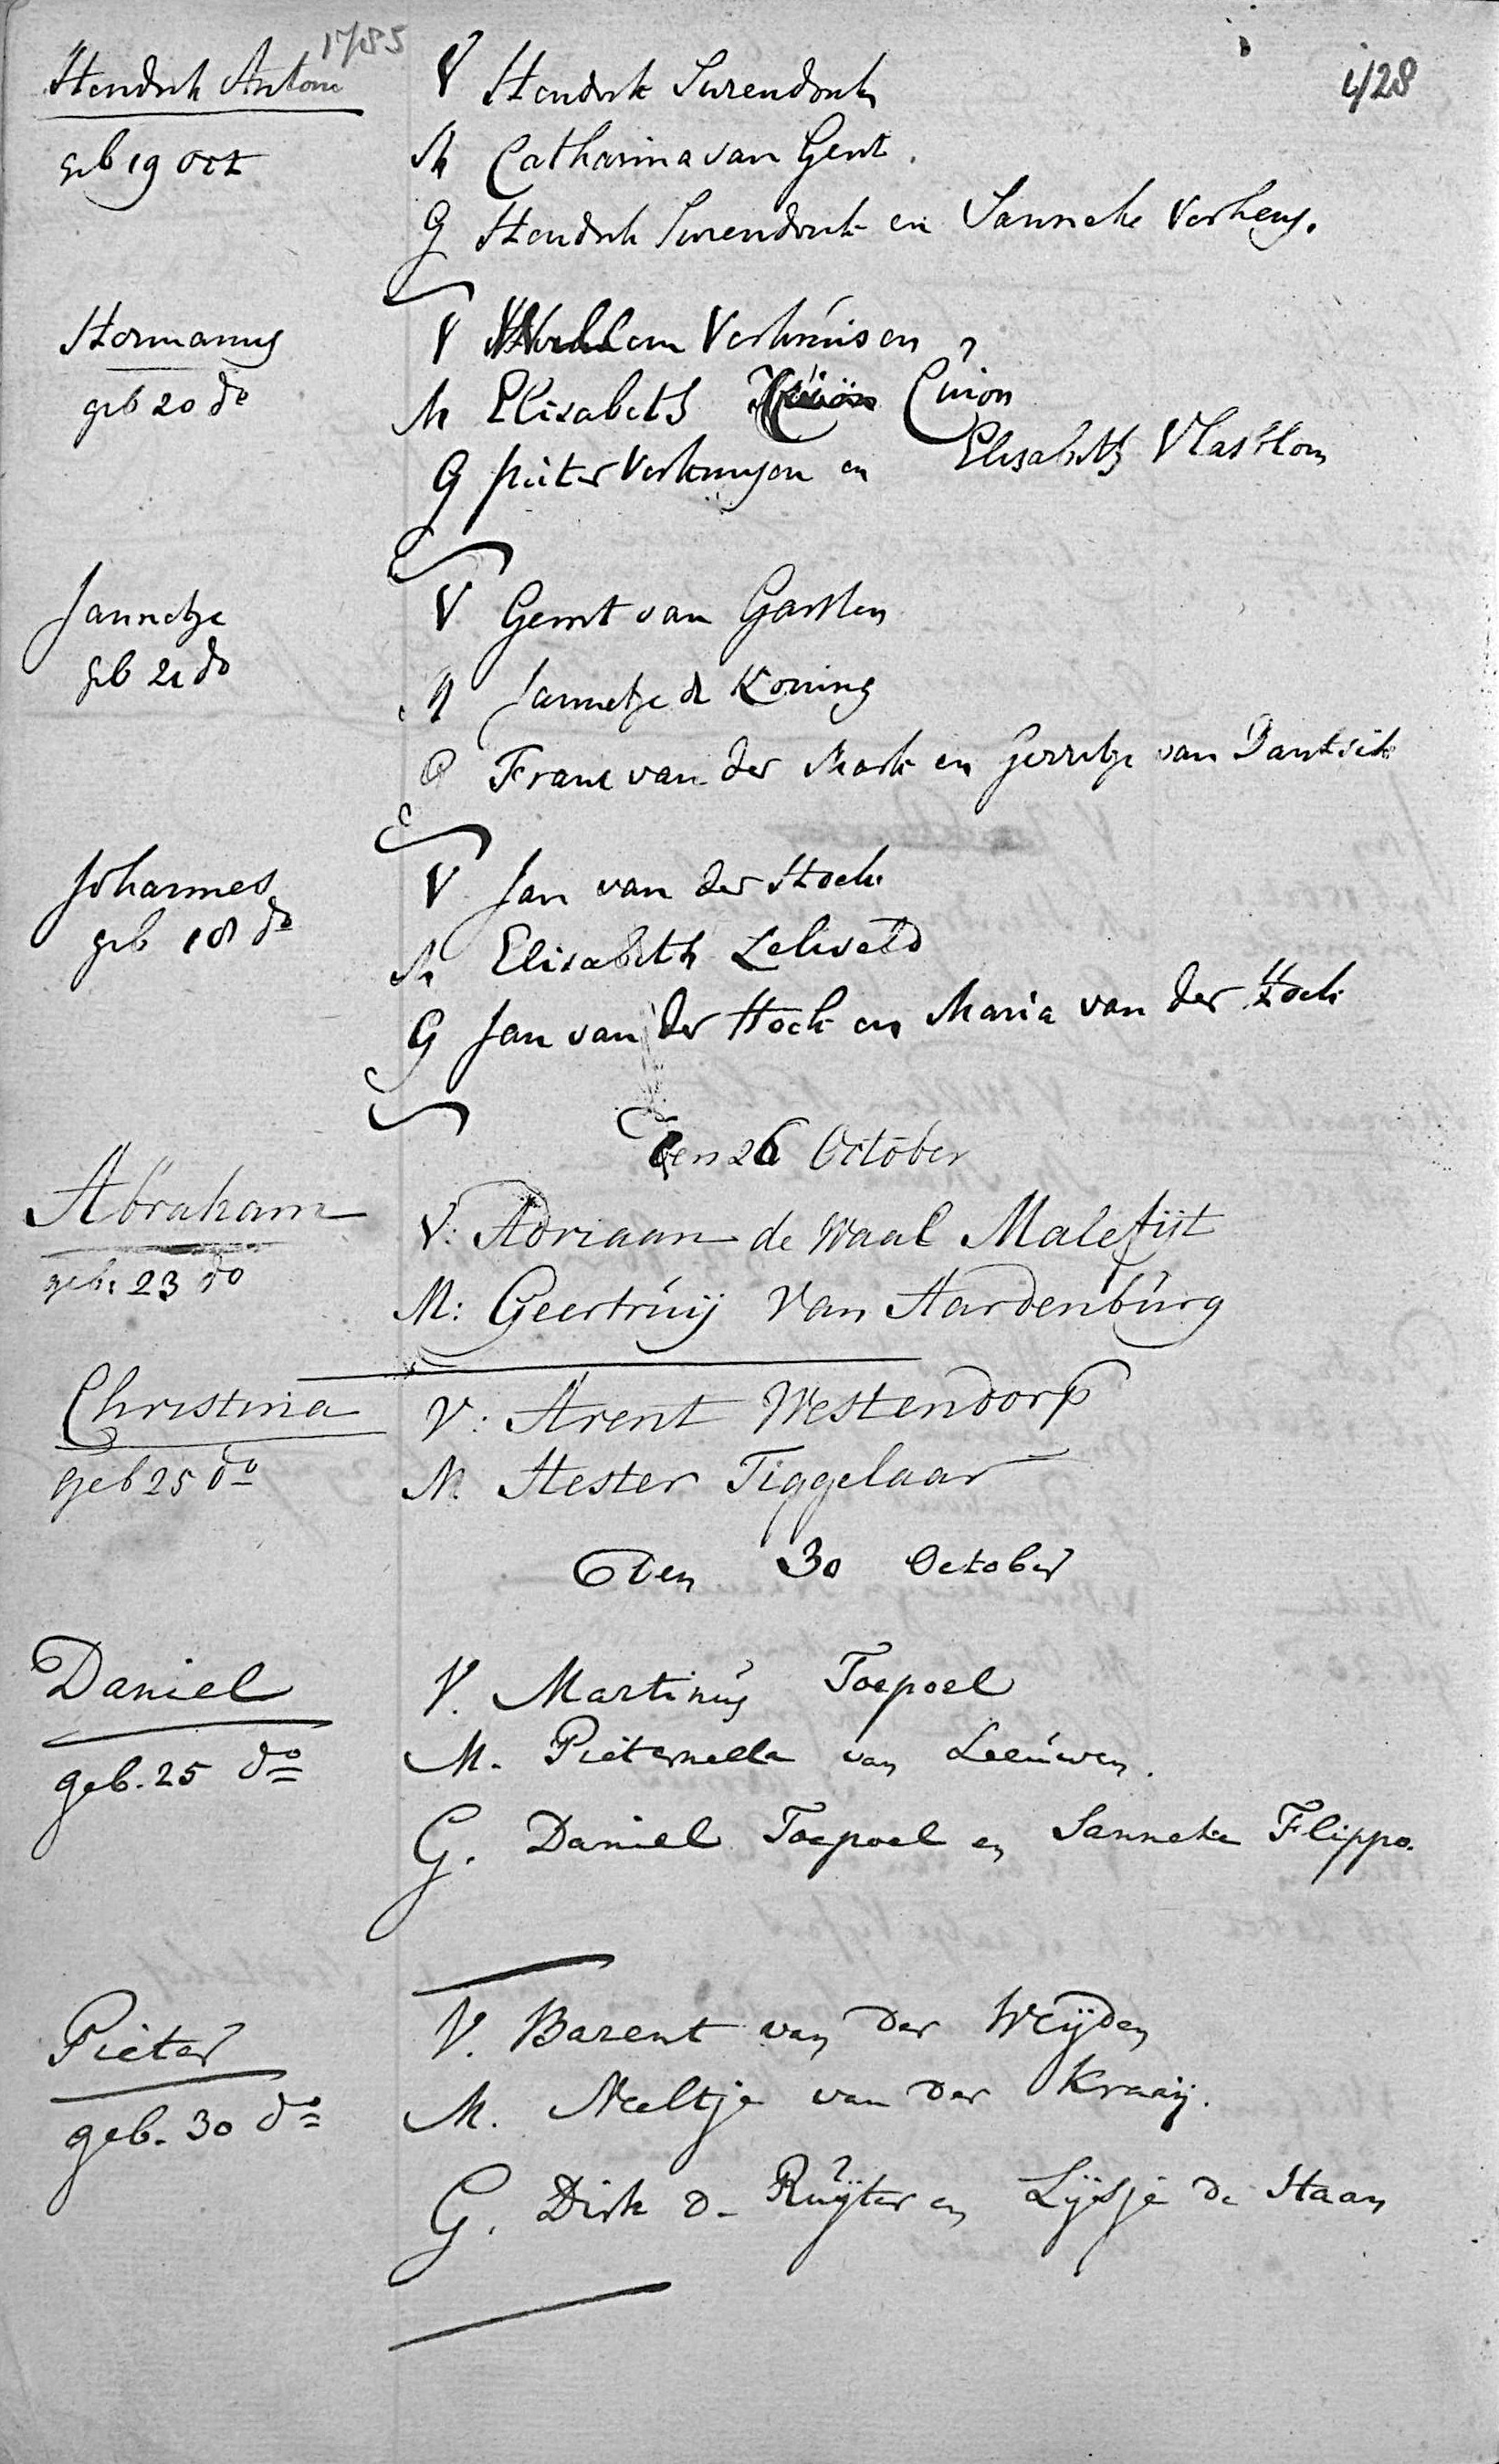 1785
428
Hendrik Antoni
V Hendrik Surendonk
geb 19 Oct
M Catharina van Gent.
G Hendrik Surendonk en Sanneke Verheij.
Hermanus
V Willem Verhuisen
geb 20 do
M Elisabeth Cuion
G Pieter Verhuysen en Elisabeth Vlasblom
Jannetje
V Gerrit van Garsten
geb 21 do
M Jannetje de Koning
G Frans van der Mark en Gerretje van Dantsik
Johannes
V Jan van der Hoek
geb 18 do
M Elisabeth Leliveld
G Jan van der Hoek en Maria van der Hoek
den 26 October
Abraham
V: Adriaan de Waal Malefijt
geb: 23 do
M: Geertruij van Aardenburg
Christina
V: Arent Westendorp
geb 25 do
M. Hester Tiggelaar
Den 30 October
Daniel
V. Martinus Toepoel
geb. 25 do
M. Pieternella van Leeuwen.
G. Daniel Toepoel en Sanneke Flippo.
Pieter
V. Barent van der Weijden
geb. 30 do
M. Neeltje van der Kraaij.
G. Dirk d. Ruijter en Lijsje de Haan